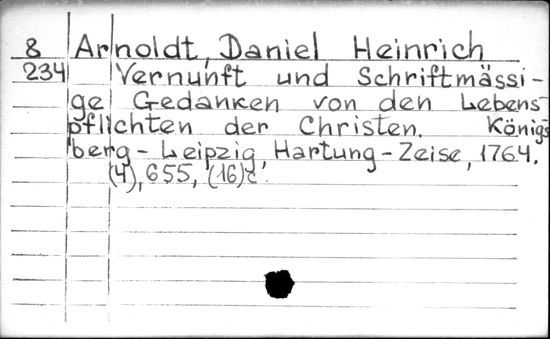 8 Arnoldt, Daniel Heinrich
234 Vernunft und Schriftmässi-
ge Gedanken von den Lebens-
pflichten der Christen. Königs
berg - Leipzig, Hartung - Zeise, 1764.
(4), 655, (16)